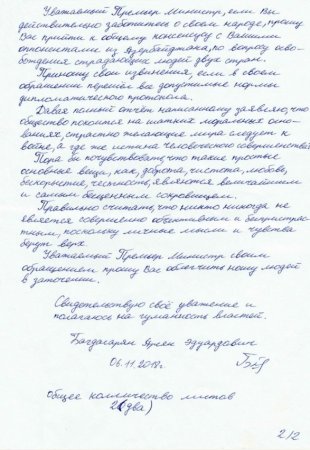 Уважаемый Премьер Министр, если Вы
действительно заботитесь о своём народе, прошу
Вас прийти к общему консенсусу с Вашими
оппонентами из Азербайджана, по вопросу осво-
бождения страдающих людей двух стран.
Приношу свои извинения, если в своём
обращении перешёл все допустимые нормы
дипломатического протокола.
Давая полный отчёт написанному заявляю, что
общество покоится на шатких моральных осно-
ваниях, страстно желающие мира следует к
войне, а где же истина человеческого совершенства?
Пора бы почувствовать, что такие простые
основные вещи, как, доброта, чистота, любовь,
бескорыстие, честность, являются величайшим
и самым бесценным сокровищем.
Правильно считать, что никто никогда не
является совершенно объективным и беспристрас-
тным, поскольку личные мысли и чувства
берут верх
Уважаемый Премьер Министр своим
обращением прошу Вас облегчить ношу людей
в заточении.
Свидетельствую своё уважение и
полагаюсь на гуманность властей.
Багдасарян Арсен Эдуардович
06.11.2018г
Общее колличество листов
2 (два)
2/2